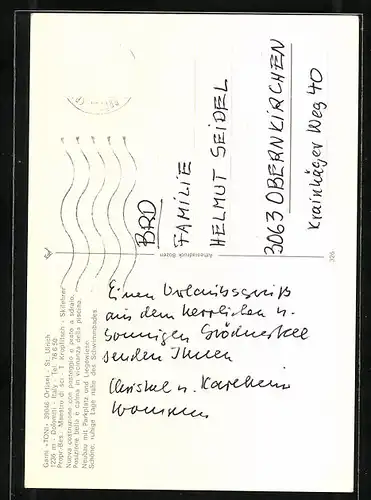 Garni «TONI» 39046 Ortisei - St. Ulrich
1236 m - Dolomiti - Italy - Tel. 76 6 50
Propr./Bes.: Maestro di sci - T. Kröpplitsch - Skilehrer
Nuova costruzione con posteggio e prato a sdraio.
Posizione bella e calma in vicinanza della piscina.
Neubau mit Parkplatz und Liegewiese.
Schöne, ruhige Lage nahe des Schwimmbades.
Einen Urlaubsgruß
aus dem herrlichen u.
sonnigen Grödnertal
senden Ihnen
Christel u. Karlheinz
Athesiadruck Bozen
BRD
FAMILIE
HELMUT SEIDEL
3063 OBERNKIRCHEN
Krainhäger Weg 40
326